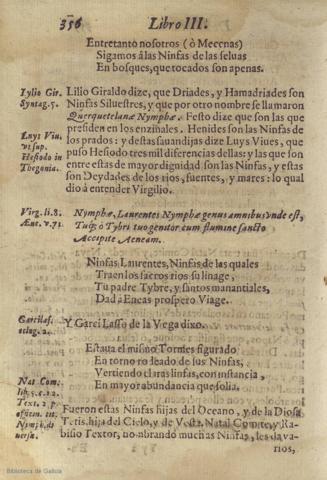 356 Libro III.
Entretanto nosotros (ò Mecenas)
Sigamos à las Ninfas de las seluas
En bosques, que tocados son apenas.
Iylio Gir.
Syntag. 5.
Lilio Giraldo dize, que Driades, y Hamadriades son
Ninfas Siluestres, y que por otro nombre se llamaron
Querquetelanæ Nymphæ. Festo dize que son las que
presiden en los enzinales. Henides son las Ninfas de
los prados: y destas sauandijas dize Luys Viues, que
Luys Viu.
vt sup.
Hesiodo in
Thegonia.
puso Hesiodo tres mil diferencias dellas: y las que son
entre estas de mayor dignidad son las Ninfas, y estas
son Deydades de los rios, fuentes, y mares: lo qual
dio à entender Virgilio.
Virg. li. 8.
Æne. v. 71.
Nymphæ, Laurentes Nymphæ genus amnibus vnde est,
Tuq; ò Tybri tuo genitor cum flumine sancto
Accipite Aeneam.
Ninfas Laurentes, Ninfas de las quales
Traen los sacros rios su linage,
Tu padre Tybre, y santos manantiales,
Dad à Eneas prospero Viage.
Garcilas.
eclog. 2.
Y Garci Lasso de la Vega dixo.
Estaua el mismo Tormes figurado
En torno rodeado de sus Ninfas,
Vertiendo claras linfas, con instancia,
En mayor abundancia que solia.
Nat Com.
lib. 5. c. 12.
Text. 2. p.
officin. tit.
Nymph. di
uersæ.
Fueron estas Ninfas hijas del Oceano, y de la Diosa
Tetis, hija del Cielo, y de Vesta. Natal Comite, y Ra-
bisio Textor, nombrando muchas Ninfas, les da va-
rios,
Biblioteca de Galicia